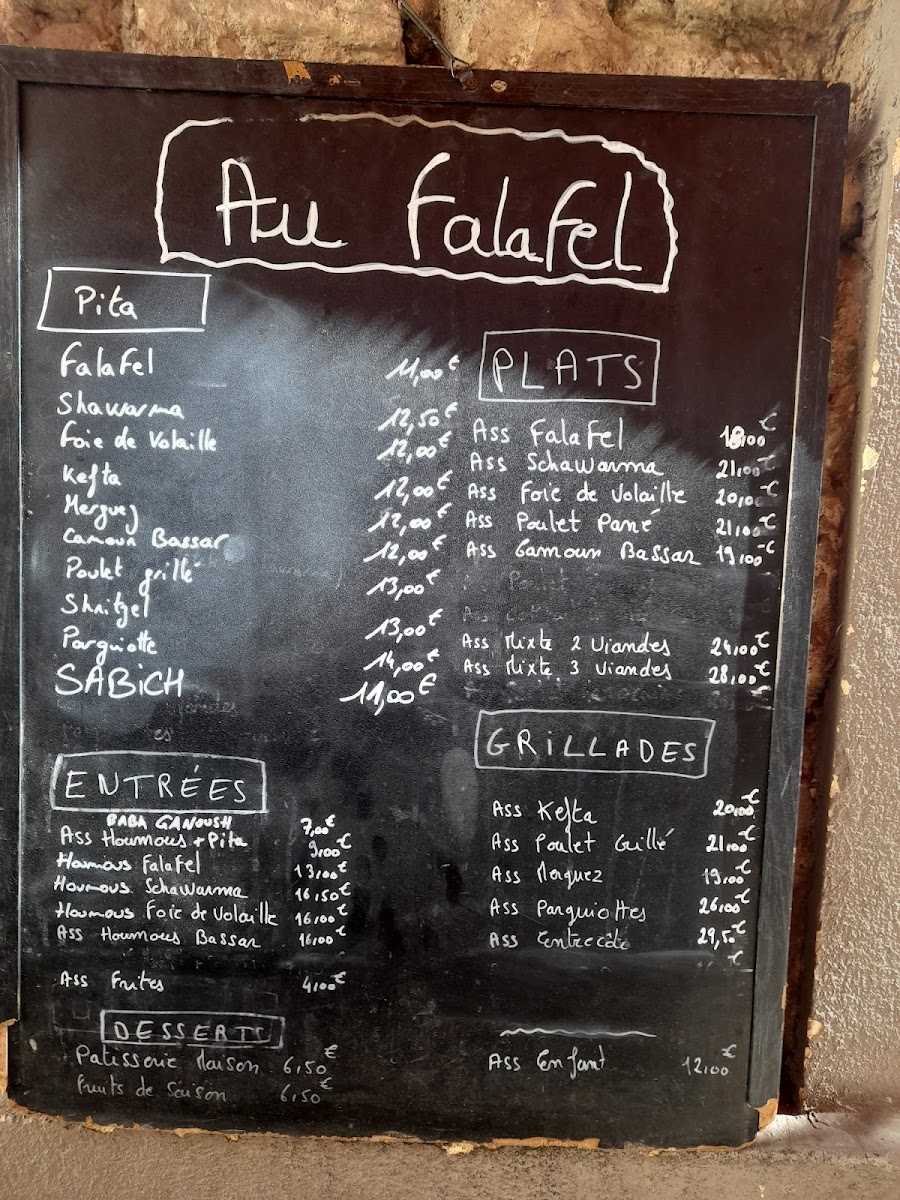 Au Falafel
Pita
Falafel 11,00€
Shawarma 12,50€
Foie de Volaille 12,00€
Kefta 12,00€
Merguez 12,00€
Camoun Bassar 12,00€
Poulet grillé 13,00€
Shnitzel 13,00€
Parguiotte 14,00€
SABiCH 11,00€
ENTRÉES
BABA GANOUSH 7,00€
Ass Houmous + Pita 9,00€
Houmous Falafel 13,00€
Houmous Schawarma 16,50€
Houmous Foie de Volaille 16,00€
Ass Houmous Bassar 16,00€
Ass Frites 4,00€
DESSERTS
Patisserie Maison 6,50€
Fruits de Saison 6,50€
PLATS
Ass Falafel 18,00€
Ass Schawarma 21,00€
Ass Foie de Volaille 20,00€
Ass Poulet Pané 21,00€
Ass Camoun Bassar 19,00€
Ass Mixte 2 Viandes 24,00€
Ass Mixte 3 Viandes 28,00€
GRiLLADES
Ass Kefta 20,00€
Ass Poulet Grillé 21,00€
Ass Merguez 19,00€
Ass Parguiottes 26,00€
Ass Entrecôte 29,50€
€
Ass Enfant 12,00€